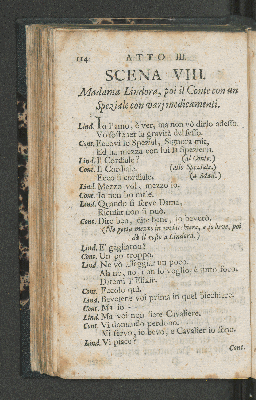 114 ATTO III.
SCENA VIII.
Madama Lindora, poi il Conte con un
Speziale con varj medicamenti.
Lind. Io l'amo, è ver, ma non vo' dirlo adesso.
Vo' sostener la gravità del sesso.
Cont. Eccovi lo Spezial, Signora mie,
Ed ha mezza con lui la Spezieria.
Lind. E Cordiale? (al Conte.)
Cont. E Cordiale. (allo Speziale.)
Ecco il cordiale. (a Mad.)
Lind. Mezza vo', mezzo io.
Cont. Io non ho male.
Lind. Quando si serve Dama,
Ricusar non si può.
Cont. Dite ben, dite bene, lo beverò.
(Ne getta mezzo in un bicchiere, e poi
dà il resto a Lindora.)
Lind. E' gagliardo?
Cont. Un po' troppo.
Lind. Ne vo' assaggiar un poco.
Ahi no, non lo voglio, è tutto foco.
Datemi l'Elisir.
Cont. Eccolo quà.
Lind. Bevetene voi prima in quel bicchiere.
Cont. Ma io
Lind. Ma voi non siete Cavaliere.
Cont. Vi domando perdono.
Vi servo, lo bevo, e Cavalier io sono.
Lind. Vi piace?
Cont.